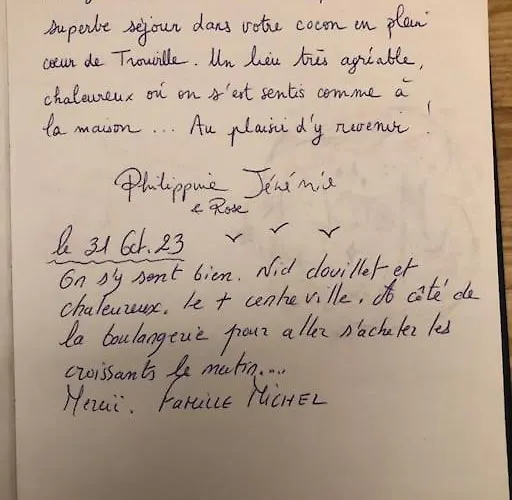 superbe séjour dans votre cocon en plein
cœur de Trouville. Un lieu très agréable,
chaleureux où on s'est sentis comme à
la maison ... Au plaisir d'y revenir !
Philippine Jérémie
& Rose
le 31 Oct. 23
On s'y sent bien. Nid douillet et
chaleureux. Le + centre ville. A côté de
la boulangerie pour aller s'acheter les
croissants le matin....
Merci. FAMILLE MICHEL